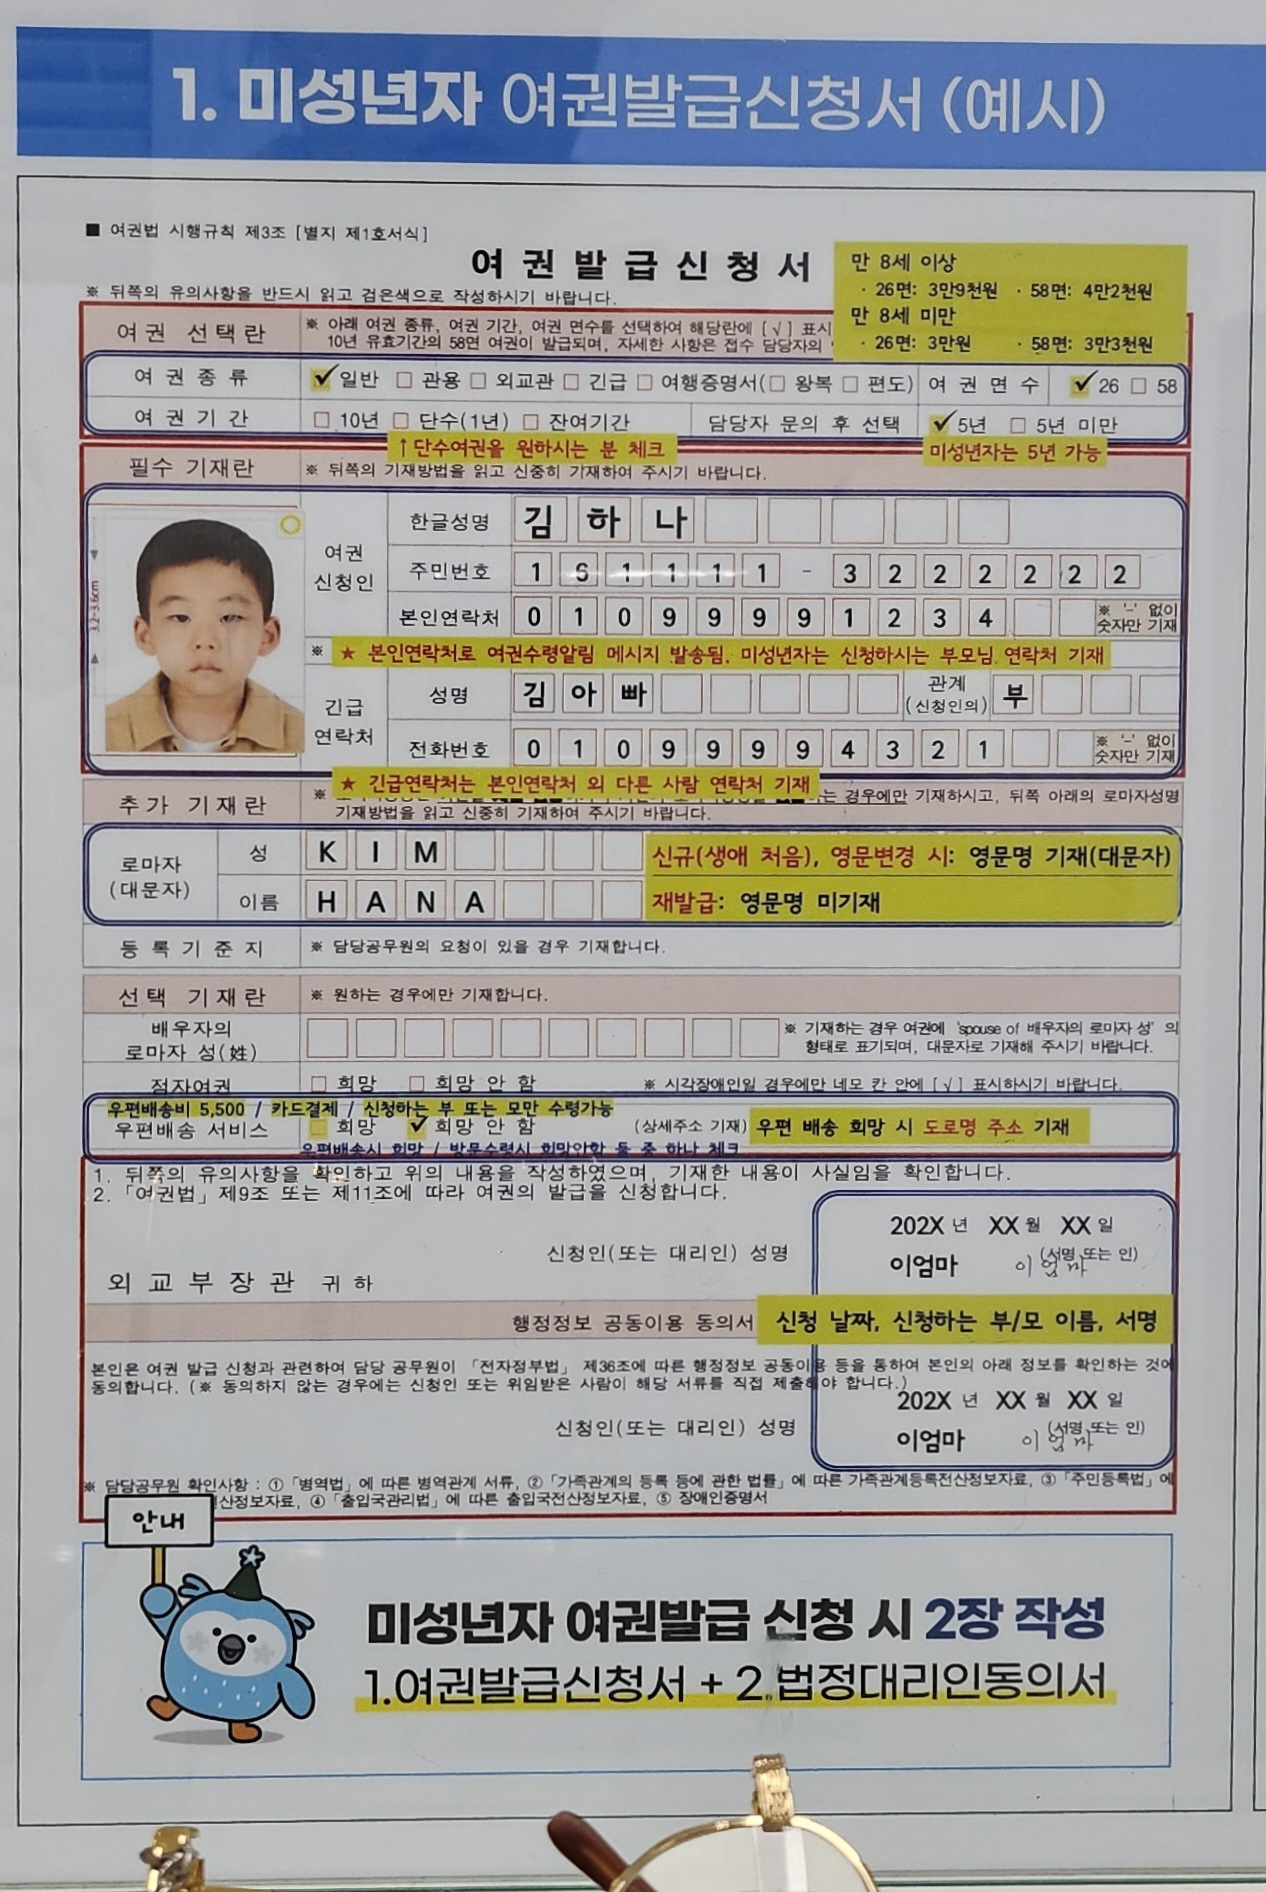 1. 미성년자 여권발급신청서 (예시)
■ 여권법 시행규칙 제3조 [별지 제1호서식]
여 권 발 급 신 청 서
※ 뒤쪽의 유의사항을 반드시 읽고 검은색으로 작성하시기 바랍니다.
만 8세 이상
· 26면: 3만9천원 · 58면: 4만2천원
만 8세 미만
· 26면: 3만원 · 58면: 3만3천원
여 권 선 택 란
※ 아래 여권 종류, 여권 기간, 여권 면수를 선택하여 해당란에 [√] 표시
10년 유효기간의 58면 여권이 발급되며, 자세한 사항은 접수 담당자의
여 권 종 류 ☑ 일반 □ 관용 □ 외교관 □ 긴급 □ 여행증명서(□ 왕복 □ 편도) 여 권 면 수 ☑ 26 □ 58
여 권 기 간 □ 10년 □ 단수(1년) □ 잔여기간 담당자 문의 후 선택 ☑ 5년 □ 5년 미만
↑단수여권을 원하시는 분 체크 미성년자는 5년 가능
필수 기재란 ※ 뒤쪽의 기재방법을 읽고 신중히 기재하여 주시기 바랍니다.
3.2-3.6cm
여권
신청인
한글성명 김 하 나
주민번호 1 6 1 1 1 1 - 3 2 2 2 2 2 2
본인연락처 0 1 0 9 9 9 9 1 2 3 4 ※ '-' 없이
숫자만 기재
※ ★ 본인연락처로 여권수령알림 메시지 발송됨. 미성년자는 신청하시는 부모님 연락처 기재
긴급
연락처
성명 김 아 빠 관계
(신청인의) 부
전화번호 0 1 0 9 9 9 9 4 3 2 1 ※ '-' 없이
숫자만 기재
★ 긴급연락처는 본인연락처 외 다른 사람 연락처 기재
추 가 기 재 란
※ 는 경우에만 기재하시고, 뒤쪽 아래의 로마자성명
기재방법을 읽고 신중히 기재하여 주시기 바랍니다.
로마자
(대문자)
성 K I M
신규(생애 처음), 영문변경 시: 영문명 기재(대문자)
이름 H A N A
재발급: 영문명 미기재
등 록 기 준 지 ※ 담당공무원의 요청이 있을 경우 기재합니다.
선택 기재란 ※ 원하는 경우에만 기재합니다.
배우자의
로마자 성(姓)
※ 기재하는 경우 여권에 'spouse of 배우자의 로마자 성' 의
형태로 표기되며, 대문자로 기재해 주시기 바랍니다.
점자여권 □ 희망 □ 희망 안 함 ※ 시각장애인일 경우에만 네모 칸 안에 [√] 표시하시기 바랍니다.
우편배송비 5,500 / 카드결제 / 신청하는 부 또는 모만 수령가능
우편배송 서비스 □ 희망 ☑ 희망 안 함 (상세주소 기재) 우편 배송 희망 시 도로명 주소 기재
우편배송시 희망 / 방문수령시 희망안함 둘 중 하나 체크
1. 뒤쪽의 유의사항을 확인하고 위의 내용을 작성하였으며, 기재한 내용이 사실임을 확인합니다.
2. 「여권법」 제9조 또는 제11조에 따라 여권의 발급을 신청합니다.
202X 년 XX 월 XX 일
신청인(또는 대리인) 성명 이엄마 (서명 또는 인)
이엄마
외 교 부 장 관 귀 하
행정정보 공동이용 동의서
신청 날짜, 신청하는 부/모 이름, 서명
본인은 여권 발급 신청과 관련하여 담당 공무원이 「전자정부법」 제36조에 따른 행정정보 공동이용 등을 통하여 본인의 아래 정보를 확인하는 것에
동의합니다. (※ 동의하지 않는 경우에는 신청인 또는 위임받은 사람이 해당 서류를 직접 제출해야 합니다.)
202X 년 XX 월 XX 일
신청인(또는 대리인) 성명 이엄마 (서명 또는 인)
이엄마
※ 담당공무원 확인사항 : ①「병역법」에 따른 병역관계 서류, ②「가족관계의 등록 등에 관한 법률」에 따른 가족관계등록전산정보자료, ③「주민등록법」에
전산정보자료, ④「출입국관리법」에 따른 출입국전산정보자료, ⑤ 장애인증명서
안내
미성년자 여권발급 신청 시 2장 작성
1.여권발급신청서 + 2.법정대리인동의서